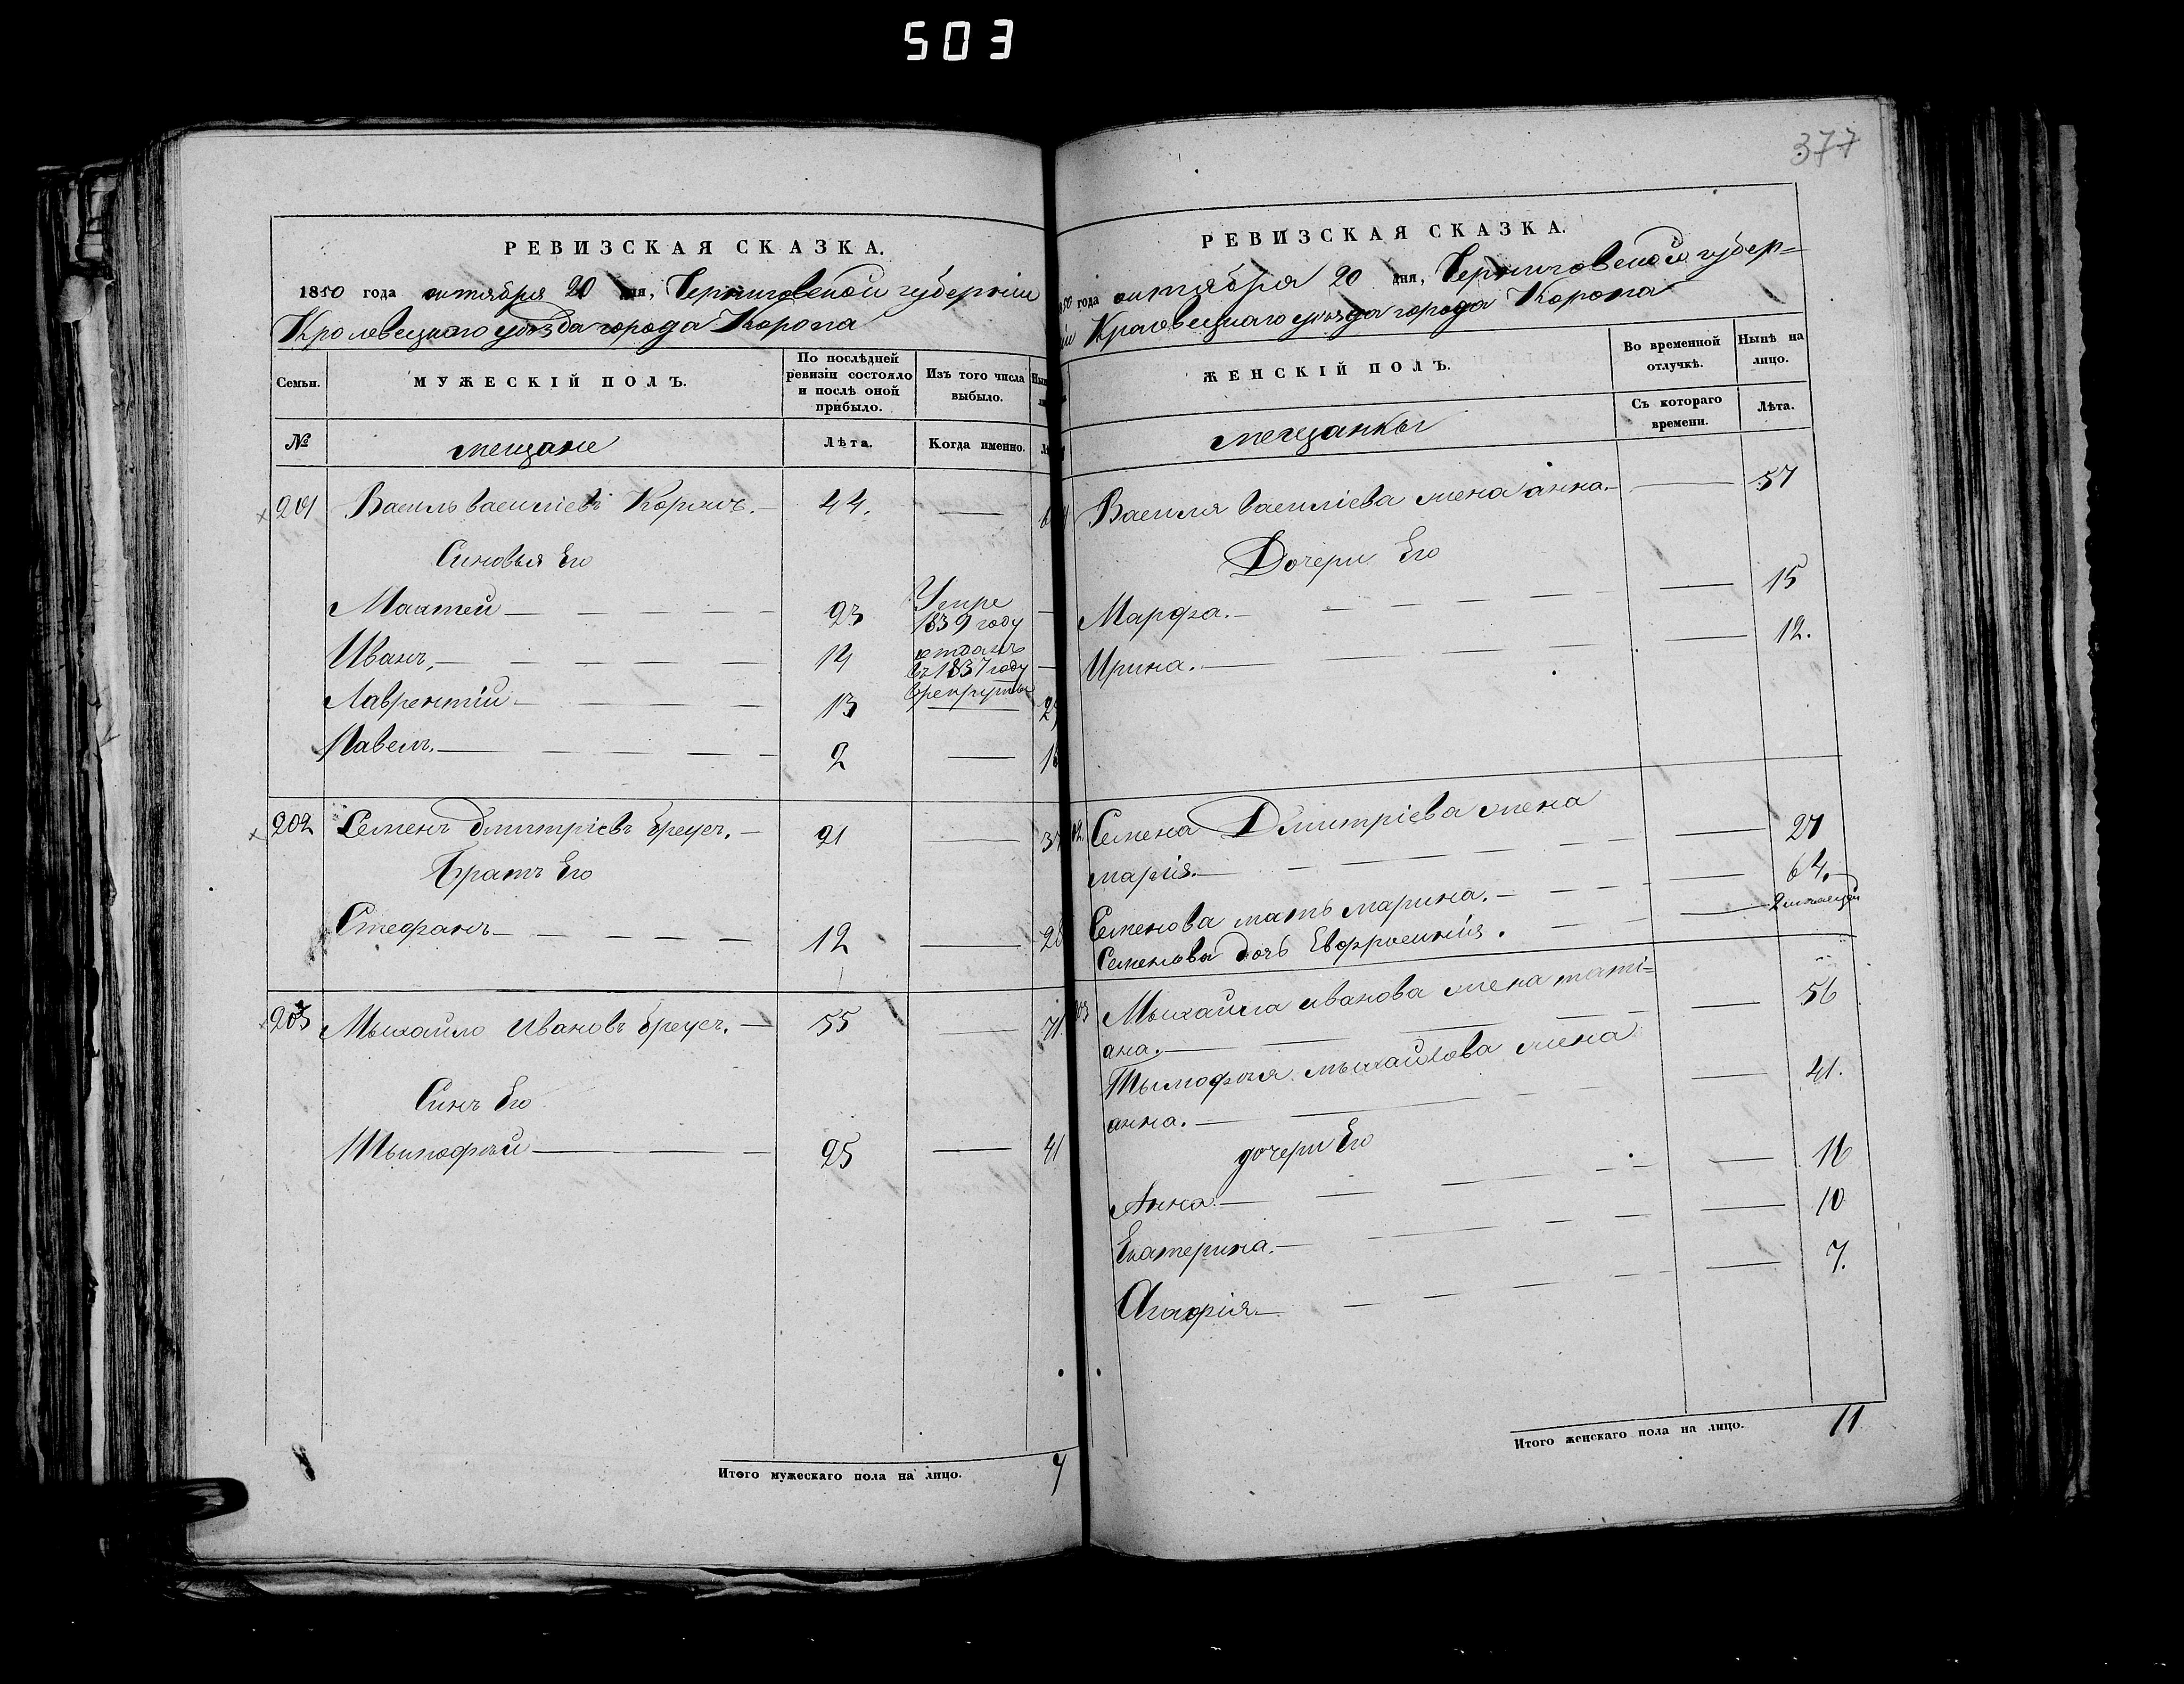 503
377
РЕВИЗСКАЯ СКАЗКА.
1850 года октября 20 дня, Черниговской губерніи
Кролевецкого уѣзда города Коропа
Семьи.
МУЖЕСКІЙ ПОЛЪ.
По послѣдней ревизіи состояло и послѣ оной прибыло.
Изъ того числа выбыло.
№
мещане
Лѣта.
Когда именно.
201 Василь Василіевъ 44.
Синовья Его
Маатей 23 Умре 1839 году
Иванъ, 14 отданъ въ 1837 году
Лаврентій 13
Павелъ. 2
202 Семенъ Дмитріевъ 21
Братъ Его
Стефанъ 12 28
203 Мыхайло Ивановъ 55 71.
Синъ Его
Тымофѣй 25 41
Итого мужескаго пола на лицо. 7
РЕВИЗСКАЯ СКАЗКА.
года октября 20 дня, Черниговской губер-
ніи Кролевецкаго уѣзда города Коропа
ЖЕНСКІЙ ПОЛЪ.
Во временной отлучкѣ.
Нынѣ на лицо.
мещанкы
Съ котораго времени.
Лѣта.
Василя Василіева жена анна. 57
Дочери Его
Марфа. 15
Ирина. 12.
Семена Дмитріева жена
марія. 27
Семенова мать марина. 64.
Семенова дочь Евфросинія.
Мыхайла иванова жена таті-
ана. 56
Тымофѣя мыхайлова жена
анна. 41.
дочери Его
Анна. 16
Екатерина. 10
Агафія 7.
Итого женскаго пола на лицо. 11